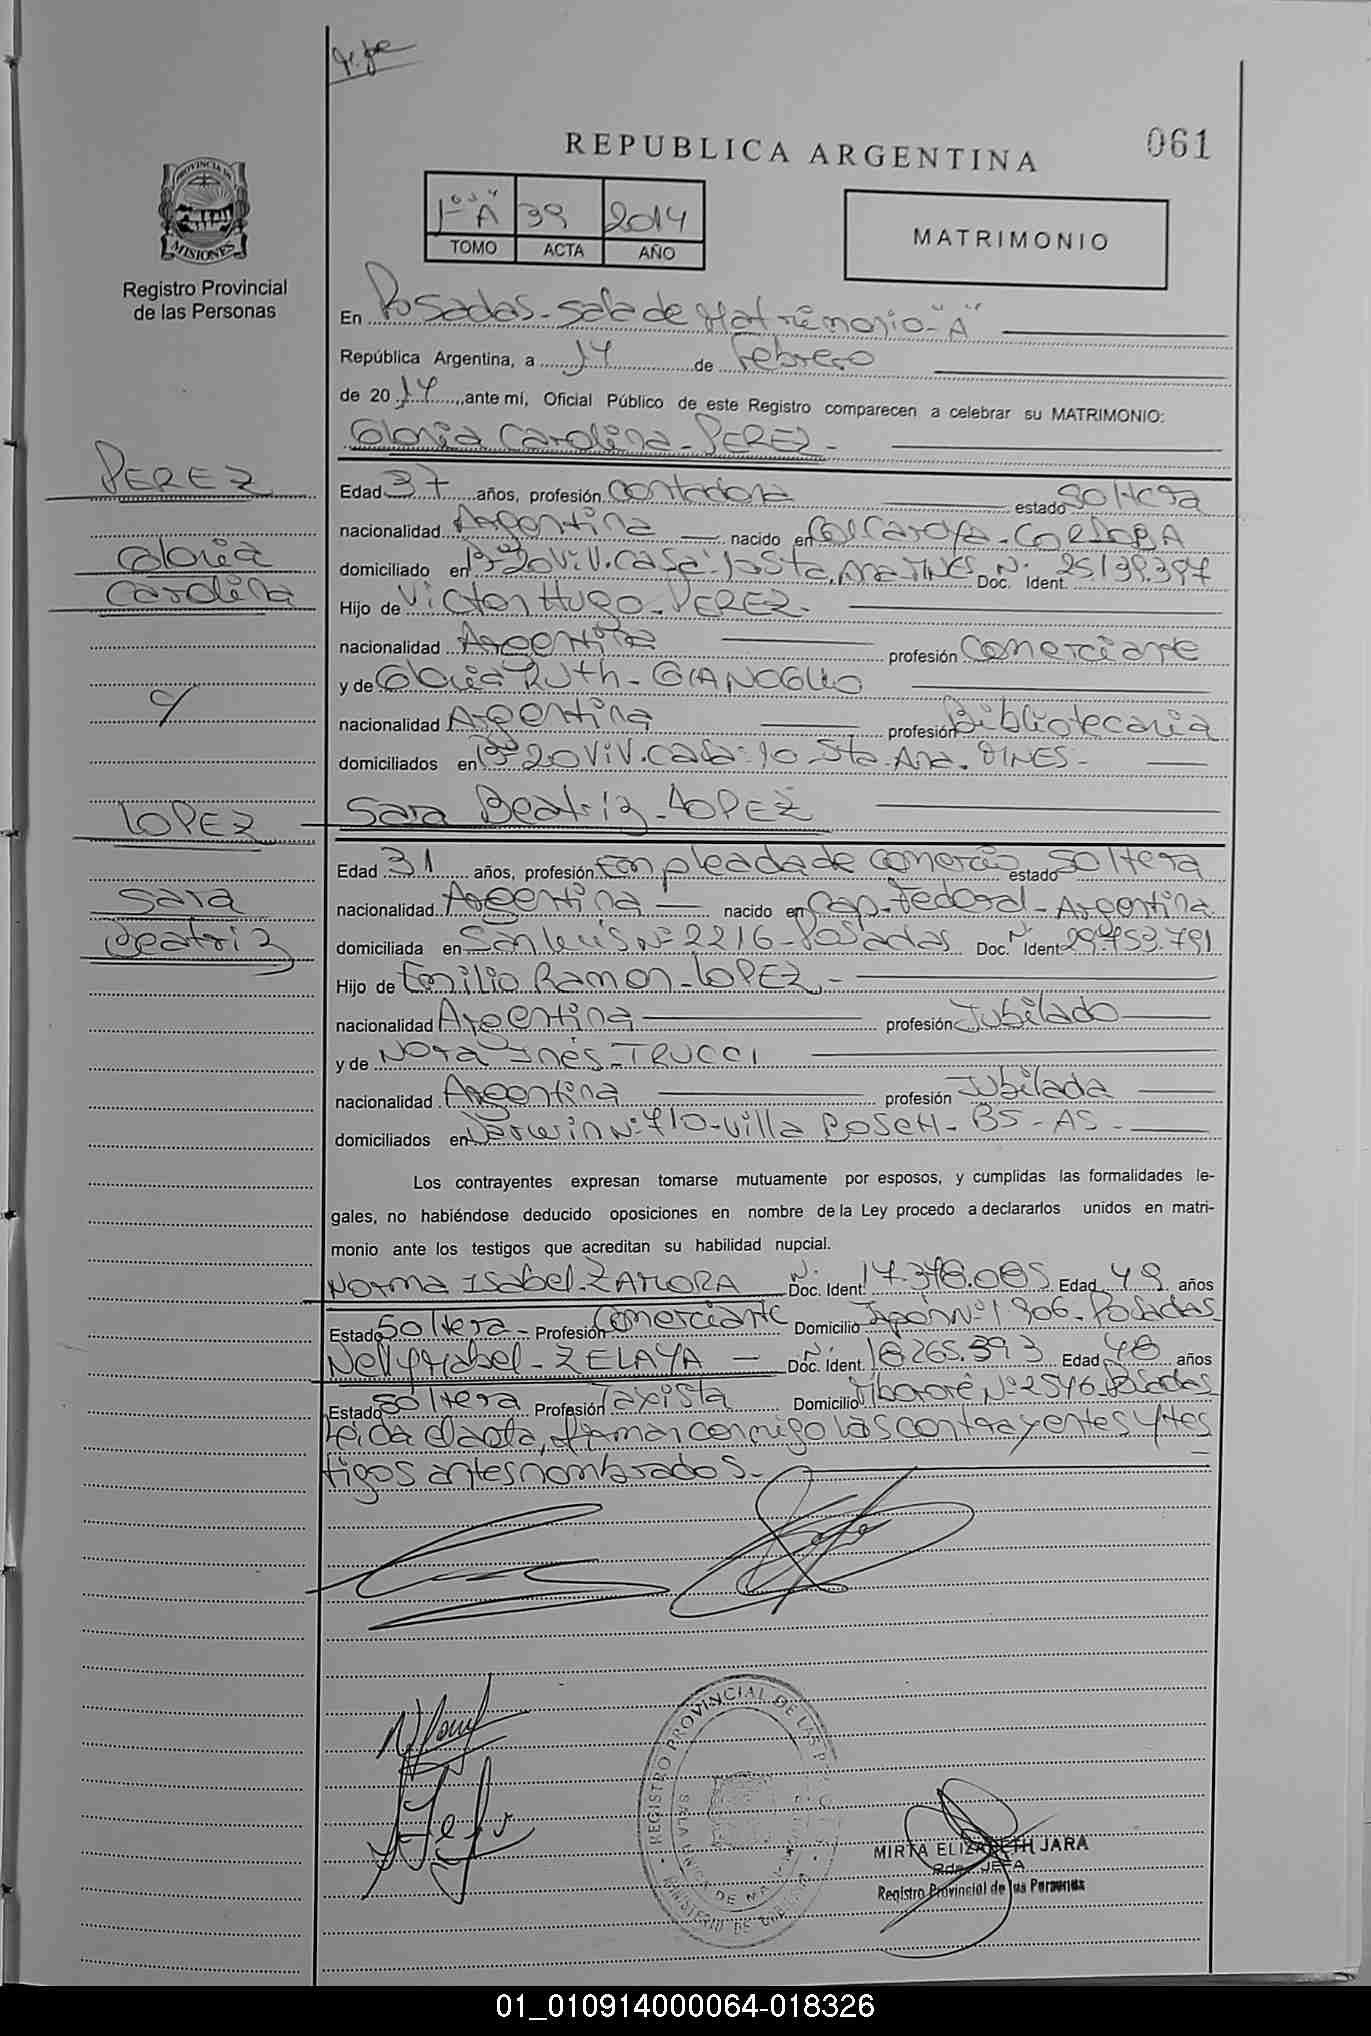 061
REPUBLICA ARGENTINA
PROVINCIA DE
MISIONES
Registro Provincial
de las Personas
1º "A" 39 2014
TOMO ACTA AÑO
MATRIMONIO
En Posadas - Sala de Matrimonio - "A"
República Argentina, a 14 de Febrero
de 2014, ante mí, Oficial Público de este Registro comparecen a celebrar su MATRIMONIO:
Gloria Carolina - PEREZ -
PEREZ
Gloria
Carolina
c/
LOPEZ
Sara
Beatriz
Edad 37 años, profesión Contadora estado Soltera
nacionalidad Argentina nacido en Col Caroya - CORDOBA
domiciliado en Bº 20 Viv. Casa: 10 Sta. Ana MNES Doc. Ident. Nº 25.139.397
Hijo de Victor Hugo - PEREZ -
nacionalidad Argentina profesión Comerciante
y de Gloria Ruth - GIANOGLIO
nacionalidad Argentina profesión Bibliotecaria
domiciliados en Bº 20 Viv. Casa: 10 Sta. Ana. MNES -
Sara Beatriz - LOPEZ
Edad 31 años, profesión Empleada de Comercio estado Soltera
nacionalidad Argentina nacido en Cap. Federal - Argentina
domiciliada en San Luis Nº 2216 - Posadas Doc. Ident. Nº 29.753.791
Hijo de Emilio Ramon - LOPEZ -
nacionalidad Argentina profesión Jubilado
y de Nora Inés - TRUCCI
nacionalidad Argentina profesión Jubilada
domiciliados en Darwin Nº 710 - Villa BOSCH - BS - AS -
Los contrayentes expresan tomarse mutuamente por esposos, y cumplidas las formalidades le-
gales, no habiéndose deducido oposiciones en nombre de la Ley procedo a declararlos unidos en matri-
monio ante los testigos que acreditan su habilidad nupcial.
Norma Isabel - ZAMORA Doc. Ident. Nº 17.378.085 Edad 49 años
Estado Soltera - Profesión Comerciante Domicilio Japón Nº 1906 - Posadas -
Nelly Mabel - ZELAYA - Doc. Ident. Nº 18.265.393 Edad 48 años
Estado Soltera Profesión Taxista Domicilio Mbororé Nº 2546 - Posadas
Leida el acta, firman conmigo las contrayentes y tes
tigos antes nombrados -
REGISTRO PROVINCIAL DE LAS
MIRTA ELIZABETH JARA
JEFA
Registro Provincial de las Personas
01_010914000064-018326